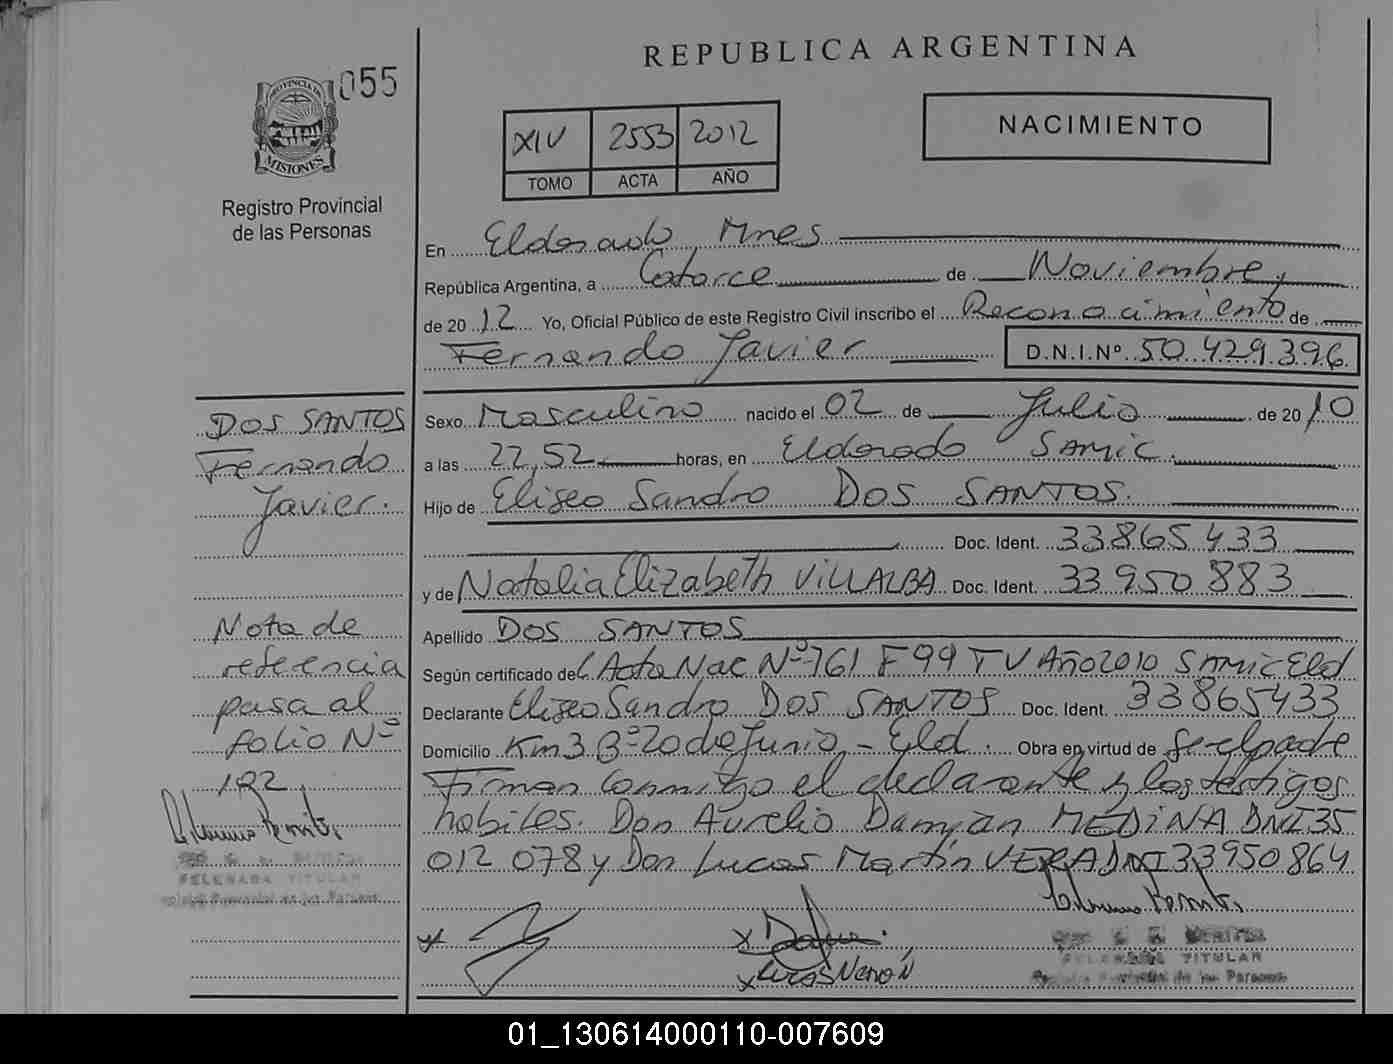 REPUBLICA ARGENTINA
055
PROVINCIA DE MISIONES
Registro Provincial
de las Personas
XIV 2553 2012
TOMO ACTA AÑO
NACIMIENTO
En Eldorado, Mnes
República Argentina, a Catorce de Noviembre,
de 2012 Yo, Oficial Público de este Registro Civil inscribo el Reconocimiento de
Fernando Javier D.N.I.Nº 50.429.396
Sexo Masculino nacido el 02 de Julio de 2010
a las 22,52 horas, en Eldorado SAMIC.
Hijo de Eliseo Sandro DOS SANTOS.
Doc. Ident. 33865433
y de Natalia Elizabeth VILLALBA Doc. Ident. 33950883
Apellido DOS SANTOS
Según certificado de Acta Nac Nº 761 F 99 T V Año 2010 SAMIC Eld
Declarante Eliseo Sandro DOS SANTOS Doc. Ident. 33865433
Domicilio Km 3 Bº 20 de Junio - Eld. Obra en virtud de padre
Firman conmigo el declarante y los testigos
habiles. Don Aurelio Damian MEDINA DNI 35
012 078 y Don Lucas Martín VERA DNI 33950864
DOS SANTOS
Fernando
Javier.
Nota de
referencia
pasa al
folio Nº
182
TITULAR
Registro Provincial de las Personas
x
x
x Lucas
TITULAR
Registro Provincial de las Personas
01_130614000110-007609